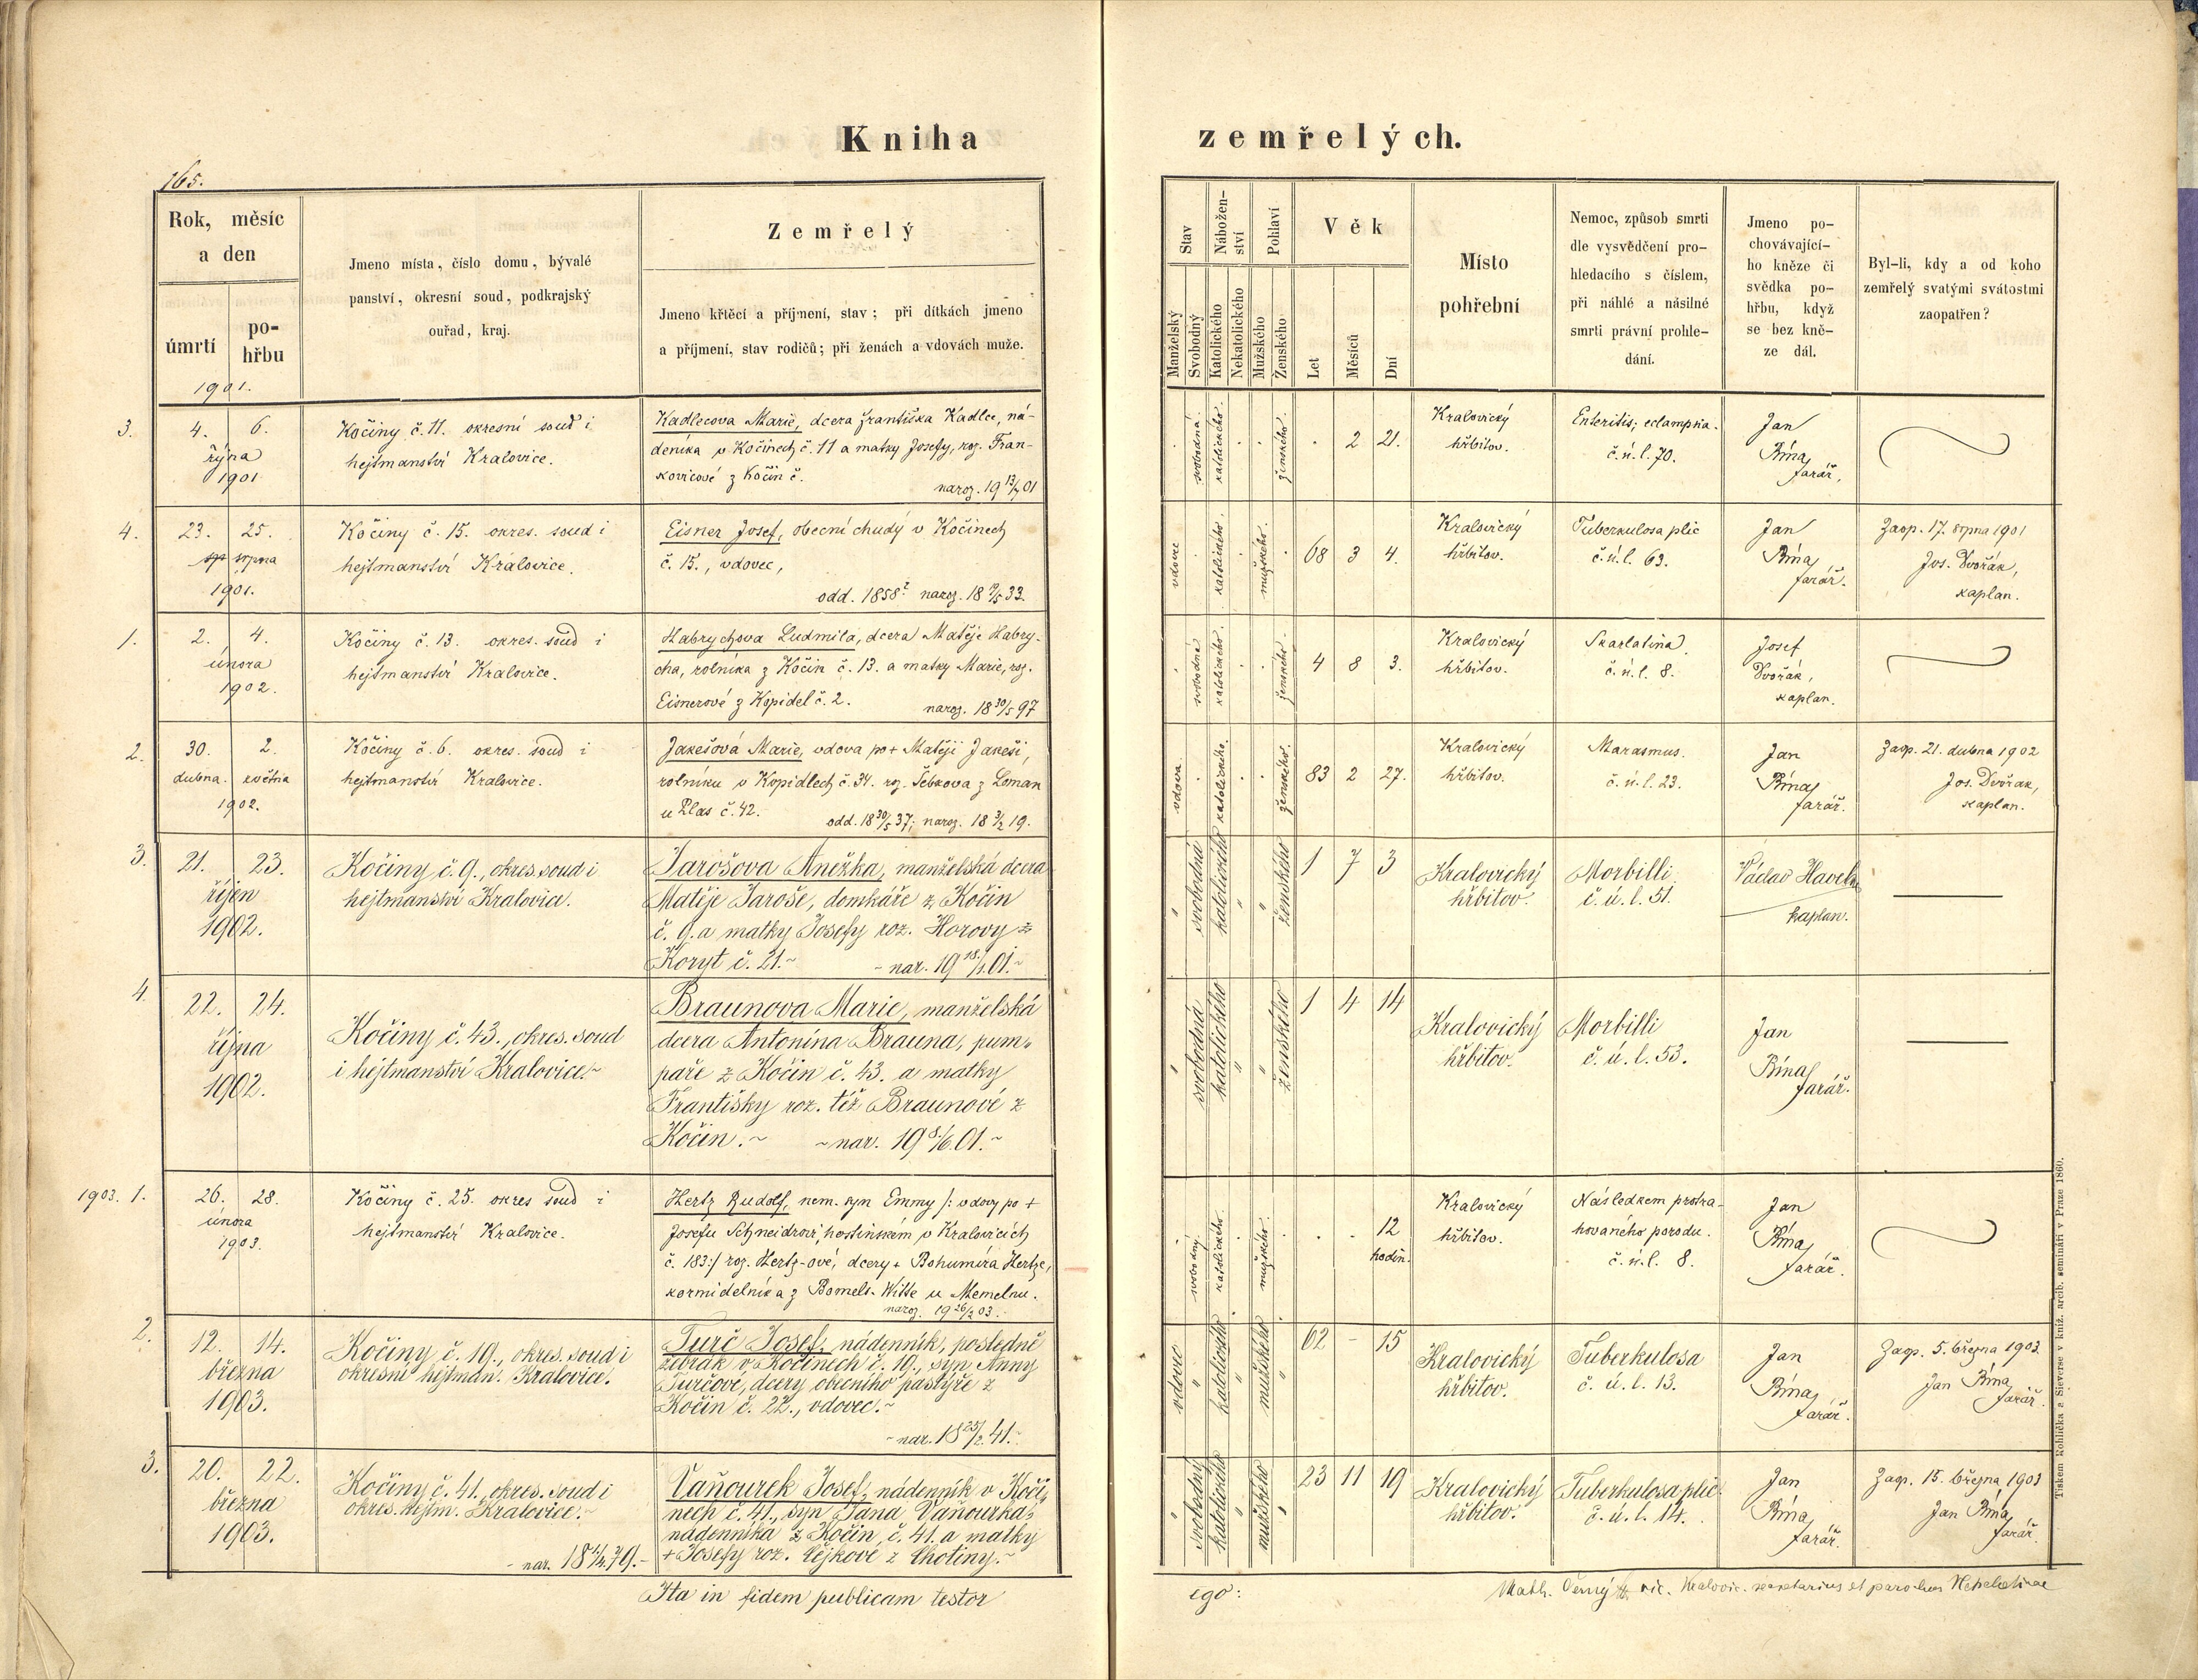 Kniha
zemřelých.
165.
Rok, měsíc
a den
úmrtí
po-
hřbu
1901.
Jmeno místa, číslo domu, bývalé
panství, okresní soud, podkrajský
ouřad, kraj.
Zemřelý
Jmeno křtěcí a příjmení, stav; při dítkách jmeno
a příjmení, stav rodičů; při ženách a vdovách muže.
Stav
Nábožen-
ství
Pohlaví
Věk
Manželský
Svobodný
Katolického
Nekatolického
Mužského
Ženského
Let
Měsíců
Dní
Místo
pohřební
Nemoc, způsob smrti
dle vysvědčení pro-
hledacího s číslem,
při náhlé a násilné
smrti právní prohle-
dání.
Jmeno po-
chovávající-
ho kněze či
svědka po-
hřbu, když
se bez kně-
ze dál.
Byl-li, kdy a od koho
zemřelý svatými svátostmi
zaopatřen?
3.
4. 6.
října
1901
Kočiny č. 11. okresní soud i
hejtmanství Kralovice.
Kadlecova Marie, dcera Františka Kadlce, ná-
deníka v Kočinech č. 11 a matky Josefy, roz. Fran-
kovicové z Kočin č.
naroz. 19 13/7 01
svobodná.
katolického.
ženského.
. 2 21.
Kralovický
hřbitov.
Enteritis; eclampsia.
č. ú. l. 70.
Jan
Říha
farář,
4.
23. 25.
srpna
1901.
Kočiny č. 15. okres. soud i
hejtmanství Kralovice.
Eisner Josef, obecní chudý v Kočinech
č. 15., vdovec,
odd. 1858? naroz. 18 19/5 33.
vdovec
katolického.
mužského.
68 3 4.
Kralovický
hřbitov.
Tuberkulosa plic
č. ú. l. 63.
Jan
Říha
farář.
Zaop. 17. srpna 1901
Jos. Dvořák,
kaplan.
1.
2. 4.
února
1902.
Kočiny č. 13. okres. soud i
hejtmanství Kralovice.
Habrychova Ludmila, dcera Matěje Habry-
cha, rolníka z Kočin č. 13. a matky Marie, roz.
Eisnerové z Kopidel č. 2.
naroz. 18 30/5 97
svobodná
katolického.
ženského.
4 8 3.
Kralovický
hřbitov.
Skarlatina.
č. ú. l. 8.
Josef
Dvořák,
kaplan.
2.
30. 2.
dubna. května
1902.
Kočiny č. 6. okres. soud i
hejtmanství Kralovice.
Jakešová Marie, vdova po + Matěji Jakeši,
rolníku v Kopidlech č. 34. roz. Šebkova z Loman
u Plas č. 42.
odd. 18 30/5 37; naroz. 18 3/2 19.
vdova.
katolického.
ženského.
83 2 27.
Kralovický
hřbitov.
Marasmus.
č. ú. l. 23.
Jan
Říha
farář.
Zaop. 21. dubna 1902
Jos. Dvořak,
kaplan.
3.
21. 23.
říjen
1902.
Kočiny č. 9., okres. soud i
hejtmanství Kralovice.
Jarošova Anežka, manželská dcera
Matěje Jaroše, domkáře z Kočin
č. 9. a matky Josefy roz. Horovy z
Koryt č. 21.~
~ nar. 19 18./1. 01.~
svobodná
katolického
ženského
1 7 3
Kralovický
hřbitov.
Morbilli
č. ú. l. 51.
Václav Havelka
kaplan.
4.
22. 24.
října
1902.
Kočiny č. 43., okres. soud
i hejtmanství Kralovice.~
Braunova Marie, manželská
dcera Antonína Brauna, pum-
paře z Kočin č. 43. a matky
Františky roz. též Braunové z
Kočin.~ ~ nar. 19 8/6. 01.~
svobodná
katolického
ženského
1 4 14
Kralovický
hřbitov.
Morbilli
č. ú. l. 53.
Jan
Říha
farář.
1903. 1.
26. 28.
února
1903.
Kočiny č. 25. okres soud i
hejtmanství Kralovice.
Hertz Rudolf, nem. syn Emmy /: vdovy po +
Josefu Schneidrovi, hostinském v Kralovicích
č. 183:/ roz. Hertz-ové, dcery + Bohumíra Hertze,
kormidelníka z Bomels-Witte u Memelnu.
naroz. 19 26/2 03.
svobodný.
katolického.
mužského.
. . 12
hodin.
Kralovický
hřbitov.
Následkem protra-
hovaného porodu.
č. ú. l. 8.
Jan
Říha
farář.
2.
12. 14.
března
1903.
Kočiny č. 19., okres. soud i
okresní hejtman. Kralovice.
Turč Josef, nádenník, posledně
žebrák v Kočinech č. 19., syn Anny
Turčové, dcery obecního pastýře z
Kočin č. 22., vdovec.~
~ nar. 18 25/2. 41.~
vdovec
katolického
mužského
62 – 15
Kralovický
hřbitov.
Tuberkulosa
č. ú. l. 13.
Jan
Říha
farář.
Zaop. 5. března 1903.
Jan Říha
farář.
3.
20. 22.
března
1903.
Kočiny č. 41., okres. soud i
okres. hejtm. Kralovice.~
~ nar. 18 1/4. 79.~
Vaňourek Josef, nádenník v Koči-
nech č. 41., syn Jana Vaňourka,
nádenníka z Kočin č. 41. a matky
+ Josefy roz. Čejkové z Chotiny.~
svobodný
katolického
mužského
23 11 19
Kralovický
hřbitov.
Tuberkulosa plic.
č. ú. l. 14.
Jan
Říha
farář.
Zaop. 15. března 1903
Jan Říha
farář.
Ita in fidem publicam testor
ego:
Math. Černý vic. Kralovic. secretarius et parochus
Tiskem Rohlíčka a Sieverse v kníž. arcib. semináři v Praze 1860.